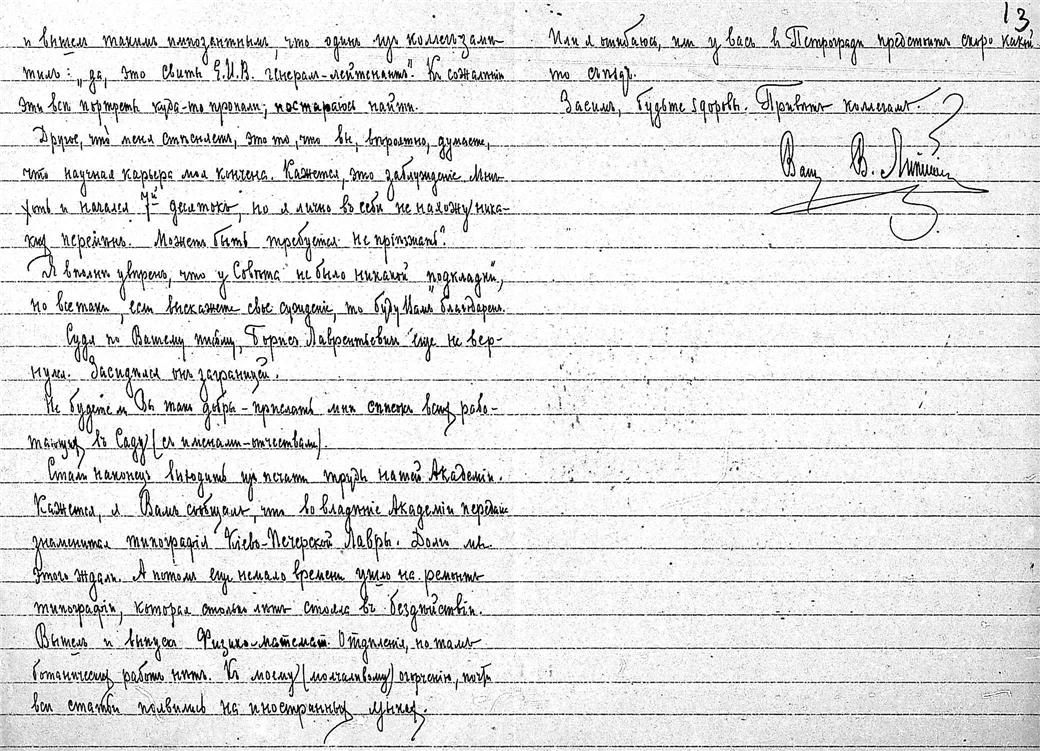 13
и вышелъ такимъ импозантнымъ, что одинъ изъ коллегъ замѣ-
тилъ: „да, это свиты Е.И.В. генерал-лейтенантъ". Къ сожалѣнію
эти всѣ портреты куда-то пропали; постараюсь найти.
Другое, что меня стѣсняетъ, это то, что вы, вѣроятно, думаете,
что научная карьера моя кончена. Кажется, это заблужденіе. Мнѣ
хоть и начался 7й десятокъ, но я лично въ себѣ не нахожу ника-
кихъ перемѣнъ. Можетъ быть требуется не пріѣзжать?
Я вполнѣ увѣренъ, что у Совѣта не было никакой „подкладки",
но всетаки, если выскажете свое сужденіе, то буду Вамъ благодаренъ.
Судя по Вашему письму, Борисъ Лаврентьевич еще не вер-
нулся. Засидѣлся онъ заграницей.
Не будете ли Вы такъ добры – прислать мнѣ списокъ всѣхъ рабо-
тающихъ въ Саду (съ именами-отчествами).
Стали наконецъ выходить изъ печати труды нашей Академіи.
Кажется, я Вамъ сообщалъ, что во владѣніе Академіи передана
знаменитая типографія Кіево-Печерской Лавры. Долго мы
этого ждали. А потомъ еще немало времени ушло на ремонтъ
типографіи, которая столько лѣтъ стояла въ бездѣйствіи.
Вышелъ и выпускъ Физико-математ. Отдѣленія, но тамъ
ботаническихъ работъ нѣтъ. Къ моему (молчаливому) огорченію, почти
всѣ статьи появились на иностранныхъ языкахъ.
Или я ошибаюсь, или у васъ в Петроградѣ предстоитъ скоро какой-
то съѣздъ.
Засимъ, будьте здоровы. Привѣтъ коллегамъ.
Ваш В. Липскій